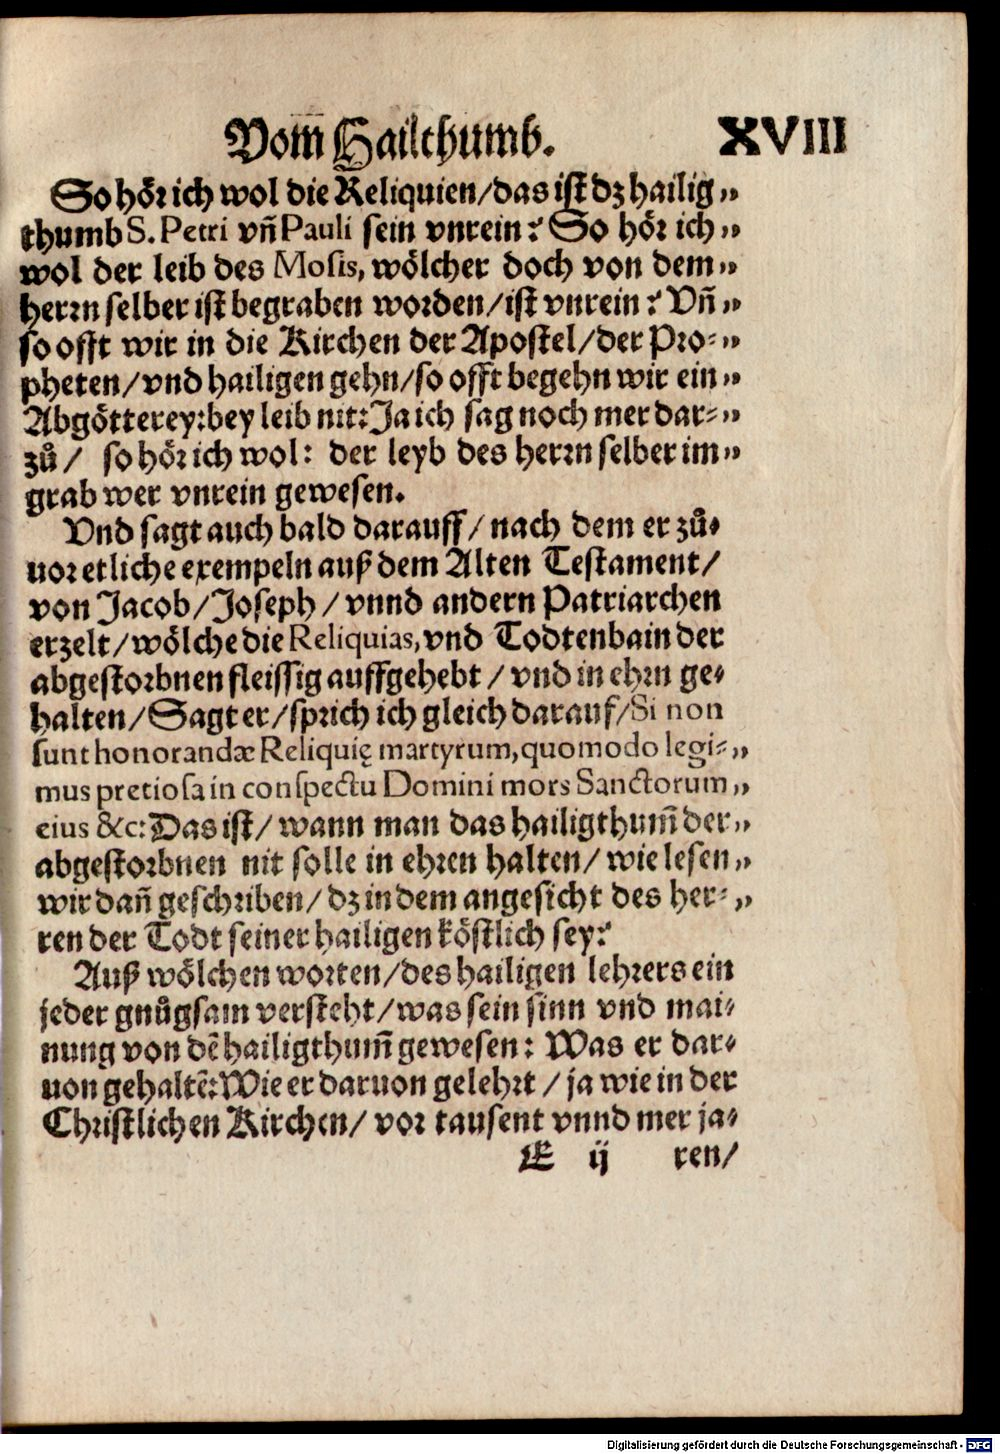 Vom̃ Hailthumb. XVIII
So hör ich wol die Reliquien/das ist dz hailig„
thumb S. Petri vñ Pauli sein vnrein? So hör ich„
wol der leib des Mosis, wölcher doch von dem„
herrn selber ist begraben worden/ist vnrein? Vñ„
so offt wir in die Kirchen der Apostel/der Pro-„
pheten/vnd hailigen gehn/so offt begehn wir ein„
Abgötterey:bey leib nit:Ja ich sag noch mer dar-„
zů/ so hör ich wol: der leyb des herrn selber im„
grab wer vnrein gewesen.
Vnd sagt auch bald darauff/nach dem er zů-
uor etliche exempeln auß dem Alten Testament/
von Jacob/Joseph/vnnd andern Patriarchen
erzelt/wölche die Reliquias, vnd Todtenbain der
abgestorbnen fleissig auffgehebt/vnd in ehrn ge-
halten/Sagt er/sprich ich gleich darauf/Si non
sunt honorandæ Reliquię martyrum,quomodo legi-„
mus pretiosa in conspectu Domini mors Sanctorum„
eius &c: Das ist/wann man das hailigthum̃ der„
abgestorbnen nit solle in ehren halten/wie lesen„
wir dañ geschriben/dz in dem angesicht des her-„
ren der Todt seiner hailigen köstlich sey?
Auß wölchen worten/des hailigen lehrers ein
jeder gnůgsam versteht/was sein sinn vnd mai-
nung von dẽ hailigthum̃ gewesen: Was er dar-
uon gehaltẽ:Wie er daruon gelehrt/ja wie in der
Christlichen Kirchen/vor tausent vnnd mer ja-
E ij ren/
Digitalisierung gefördert durch die Deutsche Forschungsgemeinschaft - DFG